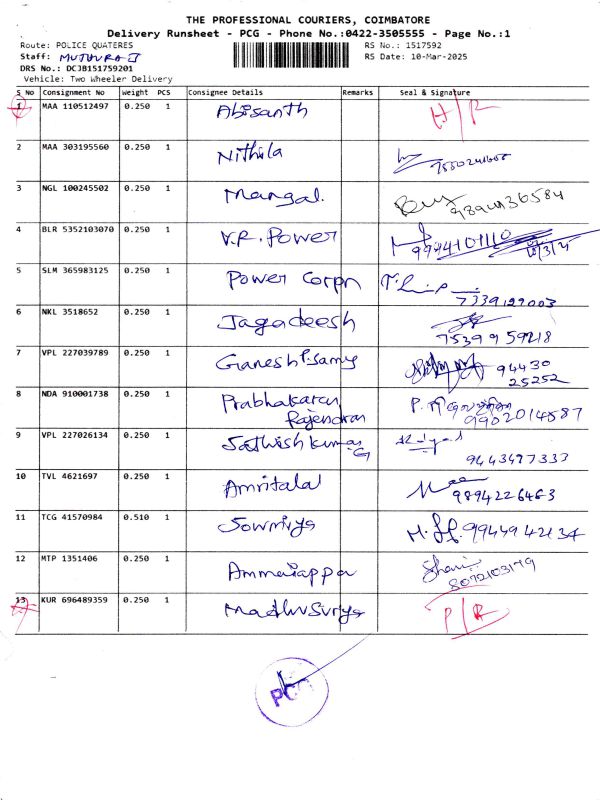 THE PROFESSIONAL COURIERS, COIMBATORE
Delivery Runsheet - PCG - Phone No.:0422-3505555 - Page No.:1
Route: POLICE QUATERES RS No.: 1517592
Staff: RS Date: 10-Mar-2025
DRS No.: DCJB151759201
Vehicle: Two Wheeler Delivery
S No Consignment No Weight PCS Consignee Details Remarks Seal & Signature
1 MAA 110512497 0.250 1 Abisanth
2 MAA 303195560 0.250 1 Nithila
3 NGL 100245502 0.250 1 Mangal.
4 BLR 5352103070 0.250 1 V.R. Power 9994101110
5 SLM 365983125 0.250 1 Power Corpn 7339129003
6 NKL 3518652 0.250 1 Jagadeesh 75399 59218
7 VPL 227039789 0.250 1 Ganesh P. Samy 94430
25252
8 NDA 910001738 0.250 1 Prabhakaran
Rajendran 9902014587
9 VPL 227026134 0.250 1 Sathish kumar
G 9443497333
10 TVL 4621697 0.250 1 Amritalal 9894226463
11 TCG 41570984 0.510 1 Sowmiya 9944942134
12 MTP 1351406 0.250 1 Ammaiappa 8072103179
13 KUR 696489359 0.250 1 Madhu Suriya P/R
PCG